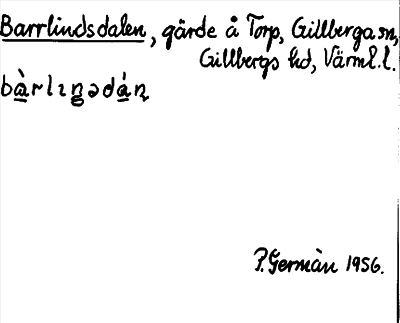 Barrlindsdalen, gärde å Torp, Gillberga sn,
Gillbergs hd, Värml. l.
bà̱rlıṉ̃əдá̱ṇ
P. Germàn 1956.